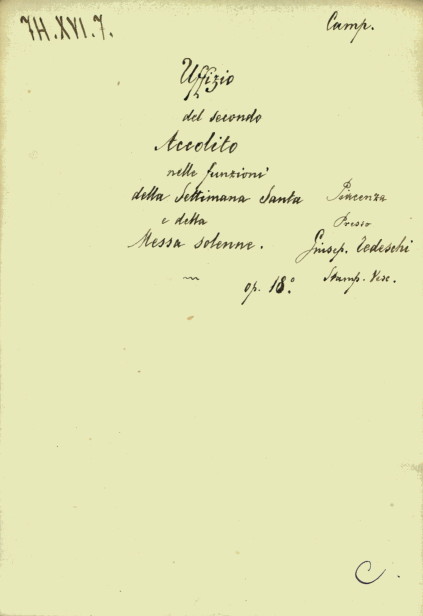 7H.XVI.7.
Camp.
Uffizio
del secondo
Accolito
nelle funzioni
della Settimana Santa
e della
Messa solenne.
op. 18.°
Piacenza
Presso
Giusep. Tedeschi
Stamp. Vesc.
C.